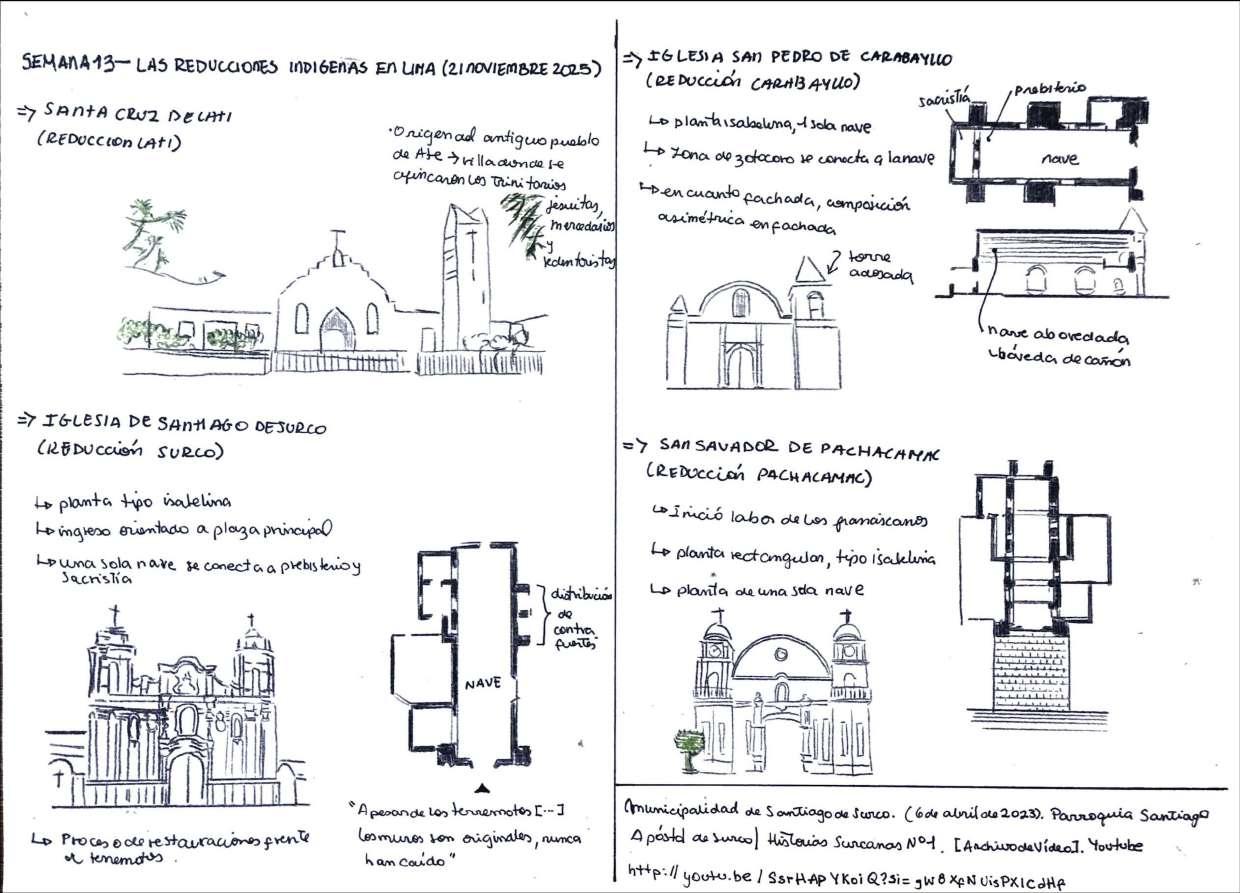 SEMANA 13 — LAS REDUCCIONES INDIGENAS EN LIMA (21 NOVIEMBRE 2025)
=> SANTA CRUZ DE LATI
(REDUCCION LATI)
·Origen al antiguo pueblo
de Ate → villa donde se
afincaron los Trinitarios
jesuitas,
mercedarios
y
redentoristas
=> IGLESIA DE SANTIAGO DE SURCO
(REDUCCIÓN SURCO)
↳ planta tipo isabelina
↳ ingreso orientado a plaza principal
↳ una sola nave se conecta a prebisterio y
sacristía
distribución
de
contra
fuertes
NAVE
↳ Proceso de restauraciones frente
a terremotos.
"A pesar de los terremotos [...]
los muros son originales, nunca
han caído"
=> IGLESIA SAN PEDRO DE CARABAYLLO
(REDUCCIÓN CARABAYLLO)
↳ planta isabelina, 1 sola nave
↳ zona de sotocoro se conecta a la nave
↳ en cuanto fachada, composición
asimétrica en fachada
sacristía
prebisterio
nave
torre
adosada
nave abovedada
bóveda de cañón
=> SAN SAVADOR DE PACHACAMAC
(REDUCCIÓN PACHACAMAC)
↳ Inició labor de los franciscanos
↳ planta rectangular, tipo isabelina
↳ planta de una sola nave
Municipalidad de Santiago de Surco. (6 de abril de 2023). Parroquia Santiago
Apóstol de Surco | Historias Surcanas Nº1. [Archivo de Vídeo]. Youtube
http://youtu.be/SsrHAPYKoiQ?si=gW8XfNUisPXICdHf